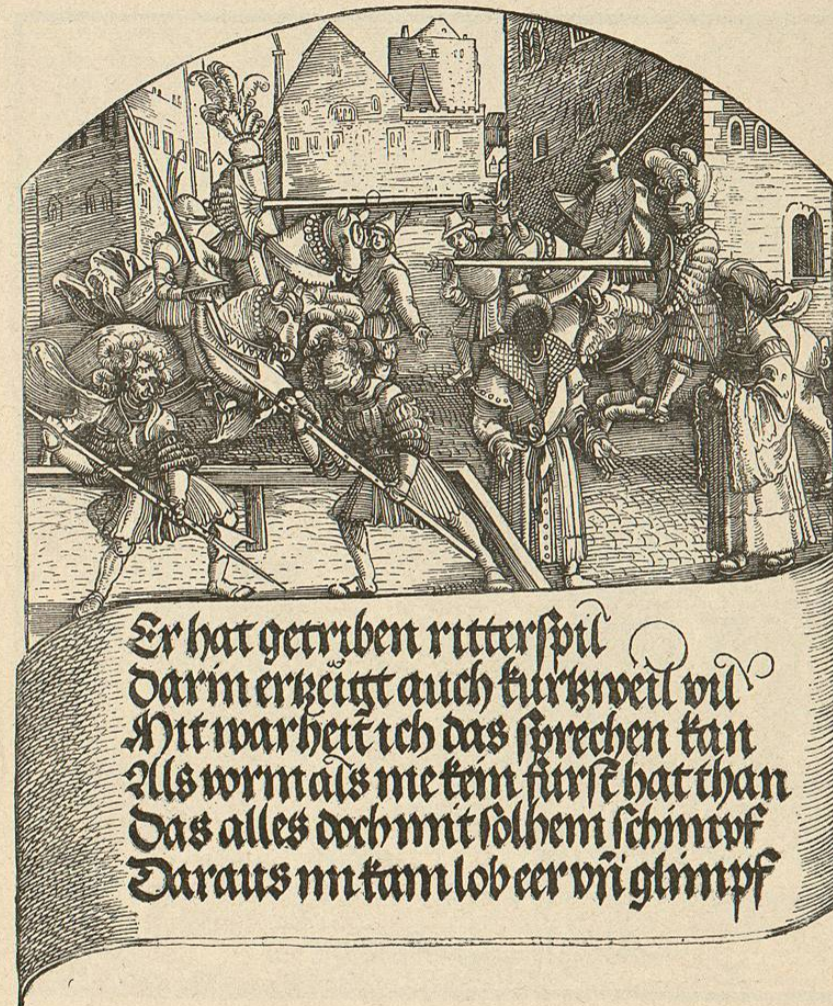 Er hat getriben ritterspil
Darin ertzeigt auch kurtzweil vil
Mit warheit ich das sprechen kan
Als vormals nie kein fürst hat than
Das alles doch mit solhem schimpf
Daraus im kam lob eer vñ glimpf